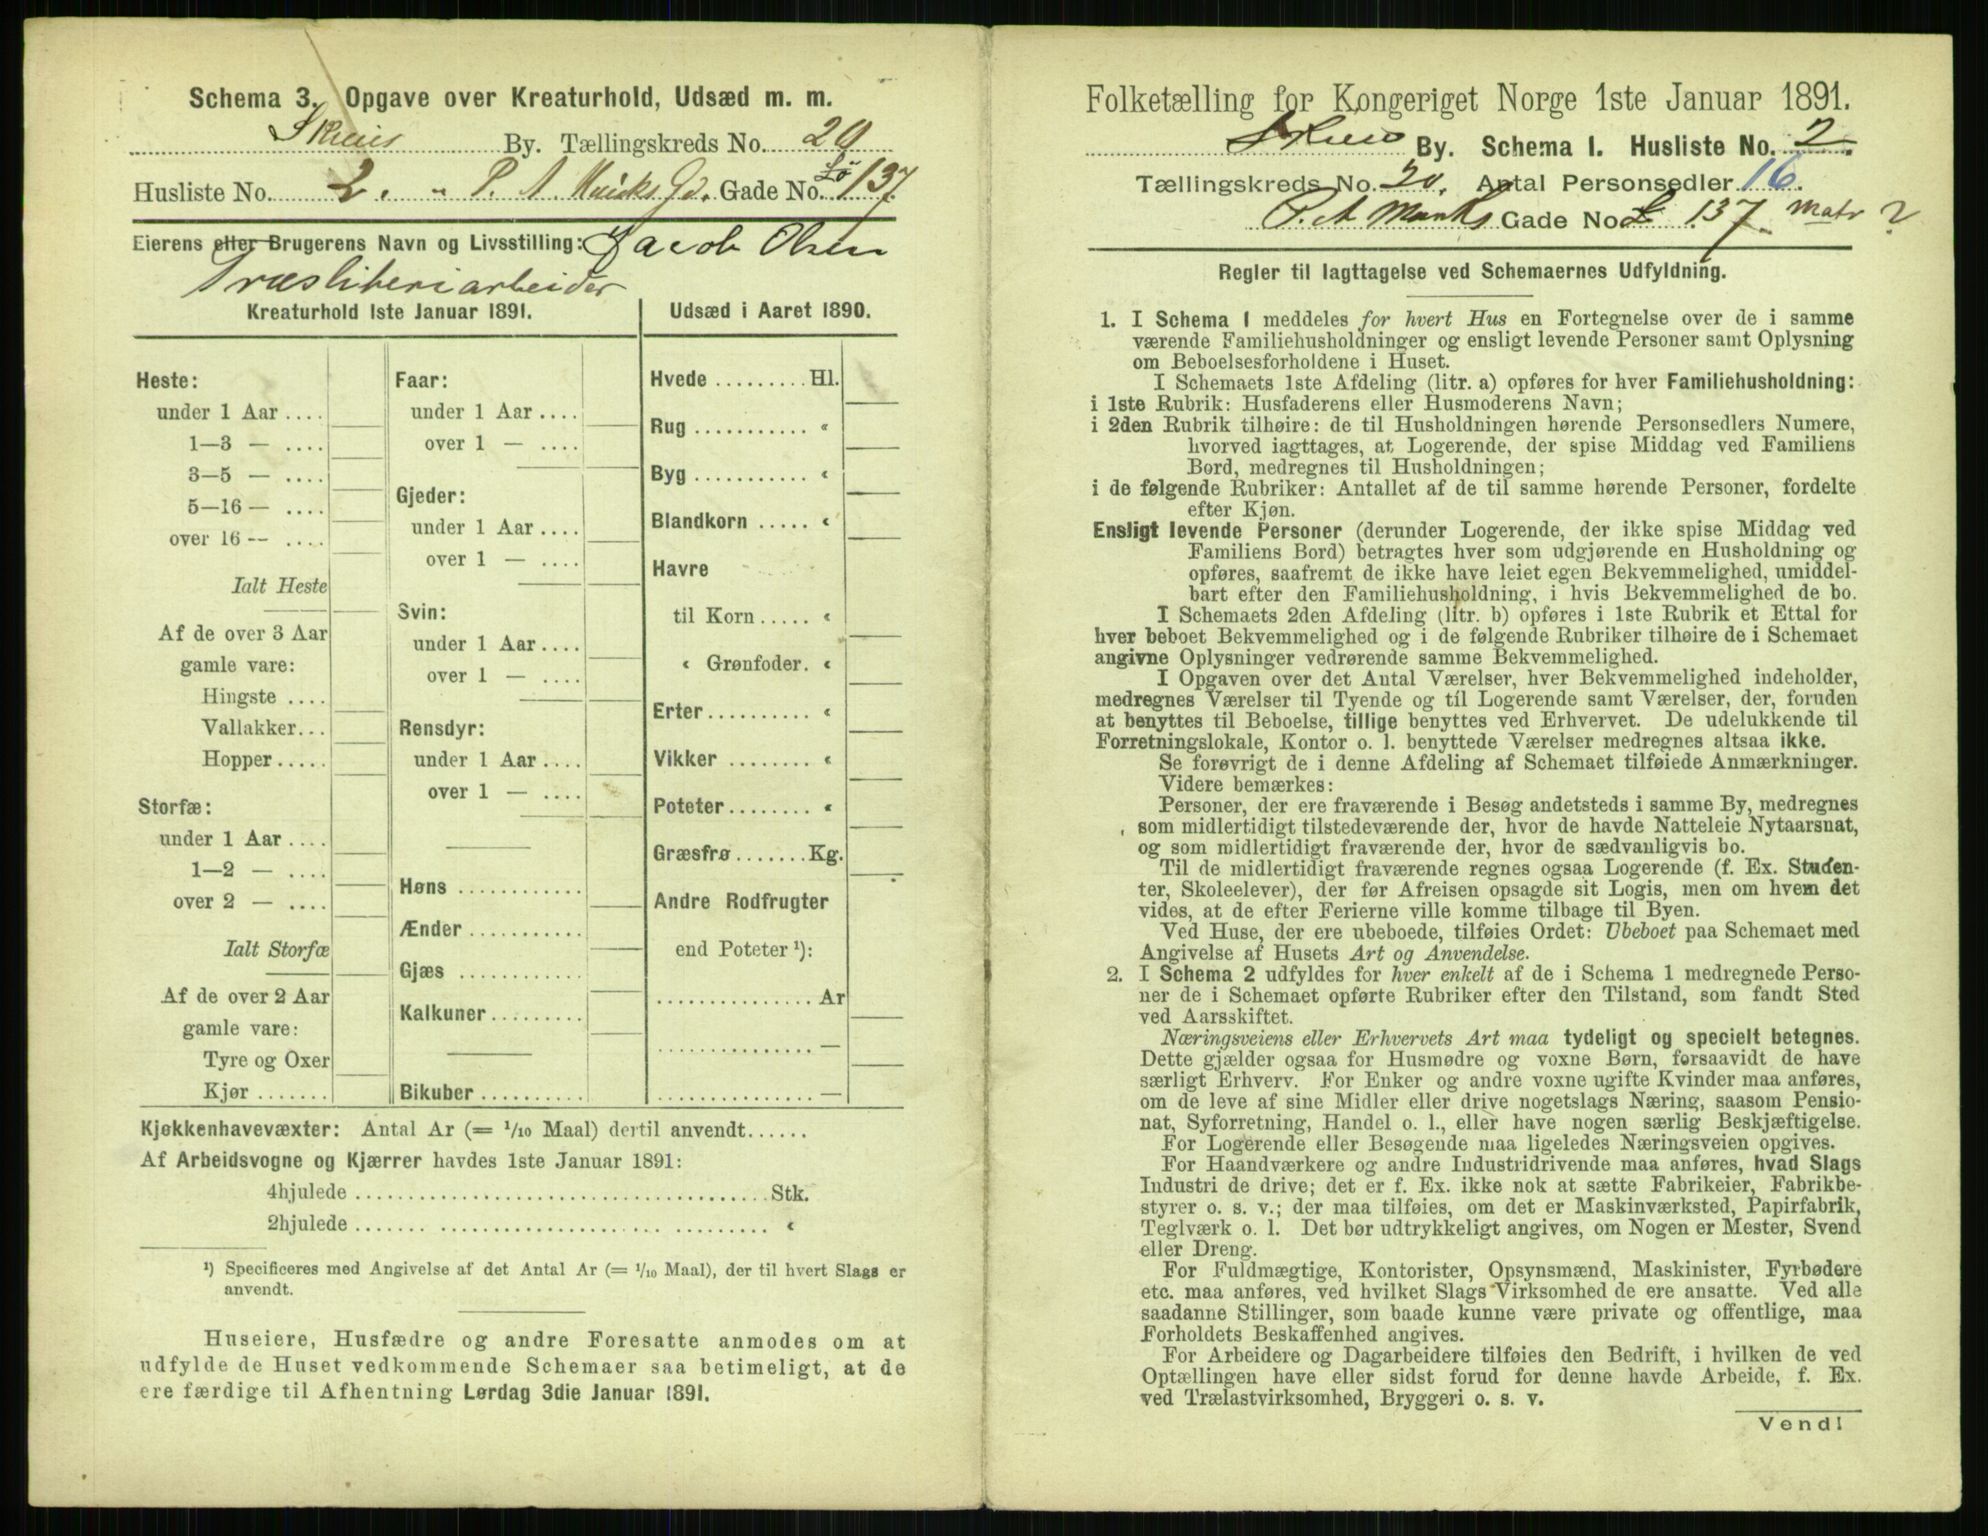 Schema 3. Opgave over Kreaturhold, Udsæd m. m.
Skien By. Tællingskreds No. 20
Husliste No. 2. " P. A. Munks Gd. Gade No. Lø 137.
Eierens eller Brugerens Navn og Livsstilling: Jacob Olsen
Træsliberiarbeider
Kreaturhold 1ste Januar 1891.
Heste:
under 1 Aar ....
1—3 — ....
3—5 — ....
5—16 — ....
over 16 — ....
Ialt Heste
Af de over 3 Aar
gamle vare:
Hingste ....
Vallakker...
Hopper.....
Storfæ:
under 1 Aar ....
1—2 — ....
over 2 — ....
Ialt Storfæ
Af de over 2 Aar
gamle vare:
Tyre og Oxer
Kjør .......
Faar:
under 1 Aar ....
over 1 — ....
Gjeder:
under 1 Aar ....
over 1 — ....
Svin:
under 1 Aar ....
over 1 — ....
Rensdyr:
under 1 Aar ....
over 1 — ....
Høns ............
Ænder ...........
Gjæs ............
Kalkuner.........
Bikuber ..........
Udsæd i Aaret 1890.
Hvede .........Hl.
Rug ........... «
Byg ........... «
Blandkorn ..... «
Havre
til Korn ..... «
« Grønfoder. «
Erter.......... «
Vikker ........ «
Poteter........ «
Græsfrø .......Kg.
Andre Rodfrugter
end Poteter ¹):
............... Ar
............... —
............... —
Kjøkkenhavevæxter: Antal Ar (= 1/10 Maal) dertil anvendt......
Af Arbeidsvogne og Kjærrer havdes 1ste Januar 1891:
4hjulede ..................................... Stk.
2hjulede ....... ..................... ......... «
¹) Specificeres med Angivelse af det Antal Ar (= 1/10 Maal), der til hvert Slags er
anvendt.
Huseiere, Husfædre og andre Foresatte anmodes om at
udfylde de Huset vedkommende Schemaer saa betimeligt, at de
ere færdige til Afhentning Lørdag 3die Januar 1891.
Folketælling for Kongeriget Norge 1ste Januar 1891.
Skien By. Schema I. Husliste No. 2.
Tællingskreds No. 20. Antal Personsedler 16.
P. A Munks Gade No. L 137 Matr ?
Regler til Iagttagelse ved Schemaernes Udfyldning.
1. I Schema 1 meddeles for hvert Hus en Fortegnelse over de i samme
værende Familiehusholdninger og ensligt levende Personer samt Oplysning
om Beboelsesforholdene i Huset.
I Schemaets 1ste Afdeling (litr. a) opføres for hver Familiehusholdning:
i 1ste Rubrik: Husfaderens eller Husmoderens Navn;
i 2den Rubrik tilhøire: de til Husholdningen hørende Personsedlers Numere,
hvorved iagttages, at Logerende, der spise Middag ved Familiens
Bord, medregnes til Husholdningen;
i de følgende Rubriker: Antallet af de til samme hørende Personer, fordelte
efter Kjøn.
Ensligt levende Personer (derunder Logerende, der ikke spise Middag ved
Familiens Bord) betragtes hver som udgjørende en Husholdning og
opføres, saafremt de ikke have leiet egen Bekvemmelighed, umiddel-
bart efter den Familiehusholdning, i hvis Bekvemmelighed de bo.
I Schemaets 2den Afdeling (litr. b) opføres i 1ste Rubrik et Ettal for
hver beboet Bekvemmelighed og i de følgende Rubriker tilhøire de i Schemaet
angivne Oplysninger vedrørende samme Bekvemmelighed.
I Opgaven over det Antal Værelser, hver Bekvemmelighed indeholder,
medregnes Værelser til Tyende og til Logerende samt Værelser, der, foruden
at benyttes til Beboelse, tillige benyttes ved Erhvervet. De udelukkende til
Forretningslokale, Kontor o. l. benyttede Værelser medregnes altsaa ikke.
Se forøvrigt de i denne Afdeling af Schemaet tilføiede Anmærkninger.
Videre bemærkes:
Personer, der ere fraværende i Besøg andetsteds i samme By, medregnes
som midlertidigt tilstedeværende der, hvor de havde Natteleie Nytaarsnat,
og som midlertidigt fraværende der, hvor de sædvanligvis bo.
Til de midlertidigt fraværende regnes ogsaa Logerende (f. Ex. Studen-
ter, Skoleelever), der før Afreisen opsagde sit Logis, men om hvem det
vides, at de efter Ferierne ville komme tilbage til Byen.
Ved Huse, der ere ubeboede, tilføies Ordet: Ubeboet paa Schemaet med
Angivelse af Husets Art og Anvendelse.
2. I Schema 2 udfyldes for hver enkelt af de i Schema 1 medregnede Perso-
ner de i Schemaet opførte Rubriker efter den Tilstand, som fandt Sted
ved Aarsskiftet.
Næringsveiens eller Erhvervets Art maa tydeligt og specielt betegnes.
Dette gjælder ogsaa for Husmødre og voxne Børn, forsaavidt de have
særligt Erhverv. For Enker og andre voxne ugifte Kvinder maa anføres,
om de leve af sine Midler eller drive nogetslags Næring, saasom Pensio-
nat, Syforretning, Handel o. l., eller have nogen særlig Beskjæftigelse.
For Logerende eller Besøgende maa ligeledes Næringsveien opgives.
For Haandværkere og andre Industridrivende maa anføres, hvad Slags
Industri de drive; det er f. Ex. ikke nok at sætte Fabrikeier, Fabrikbe-
styrer o. s. v.; der maa tilføies, om det er Maskinværksted, Papirfabrik,
Teglværk o. l. Det bør udtrykkeligt angives, om Nogen er Mester, Svend
eller Dreng.
For Fuldmægtige, Kontorister, Opsynsmænd, Maskinister, Fyrbødere
etc. maa anføres, ved hvilket Slags Virksomhed de ere ansatte. Ved alle
saadanne Stillinger, som baade kunne være private og offentlige, maa
Forholdets Beskaffenhed angives.
For Arbeidere og Dagarbeidere tilføies den Bedrift, i hvilken de ved
Optællingen have eller sidst forud for denne havde Arbeide, f. Ex.
ved Trælastvirksomhed, Bryggeri o. s. v.
Vend!